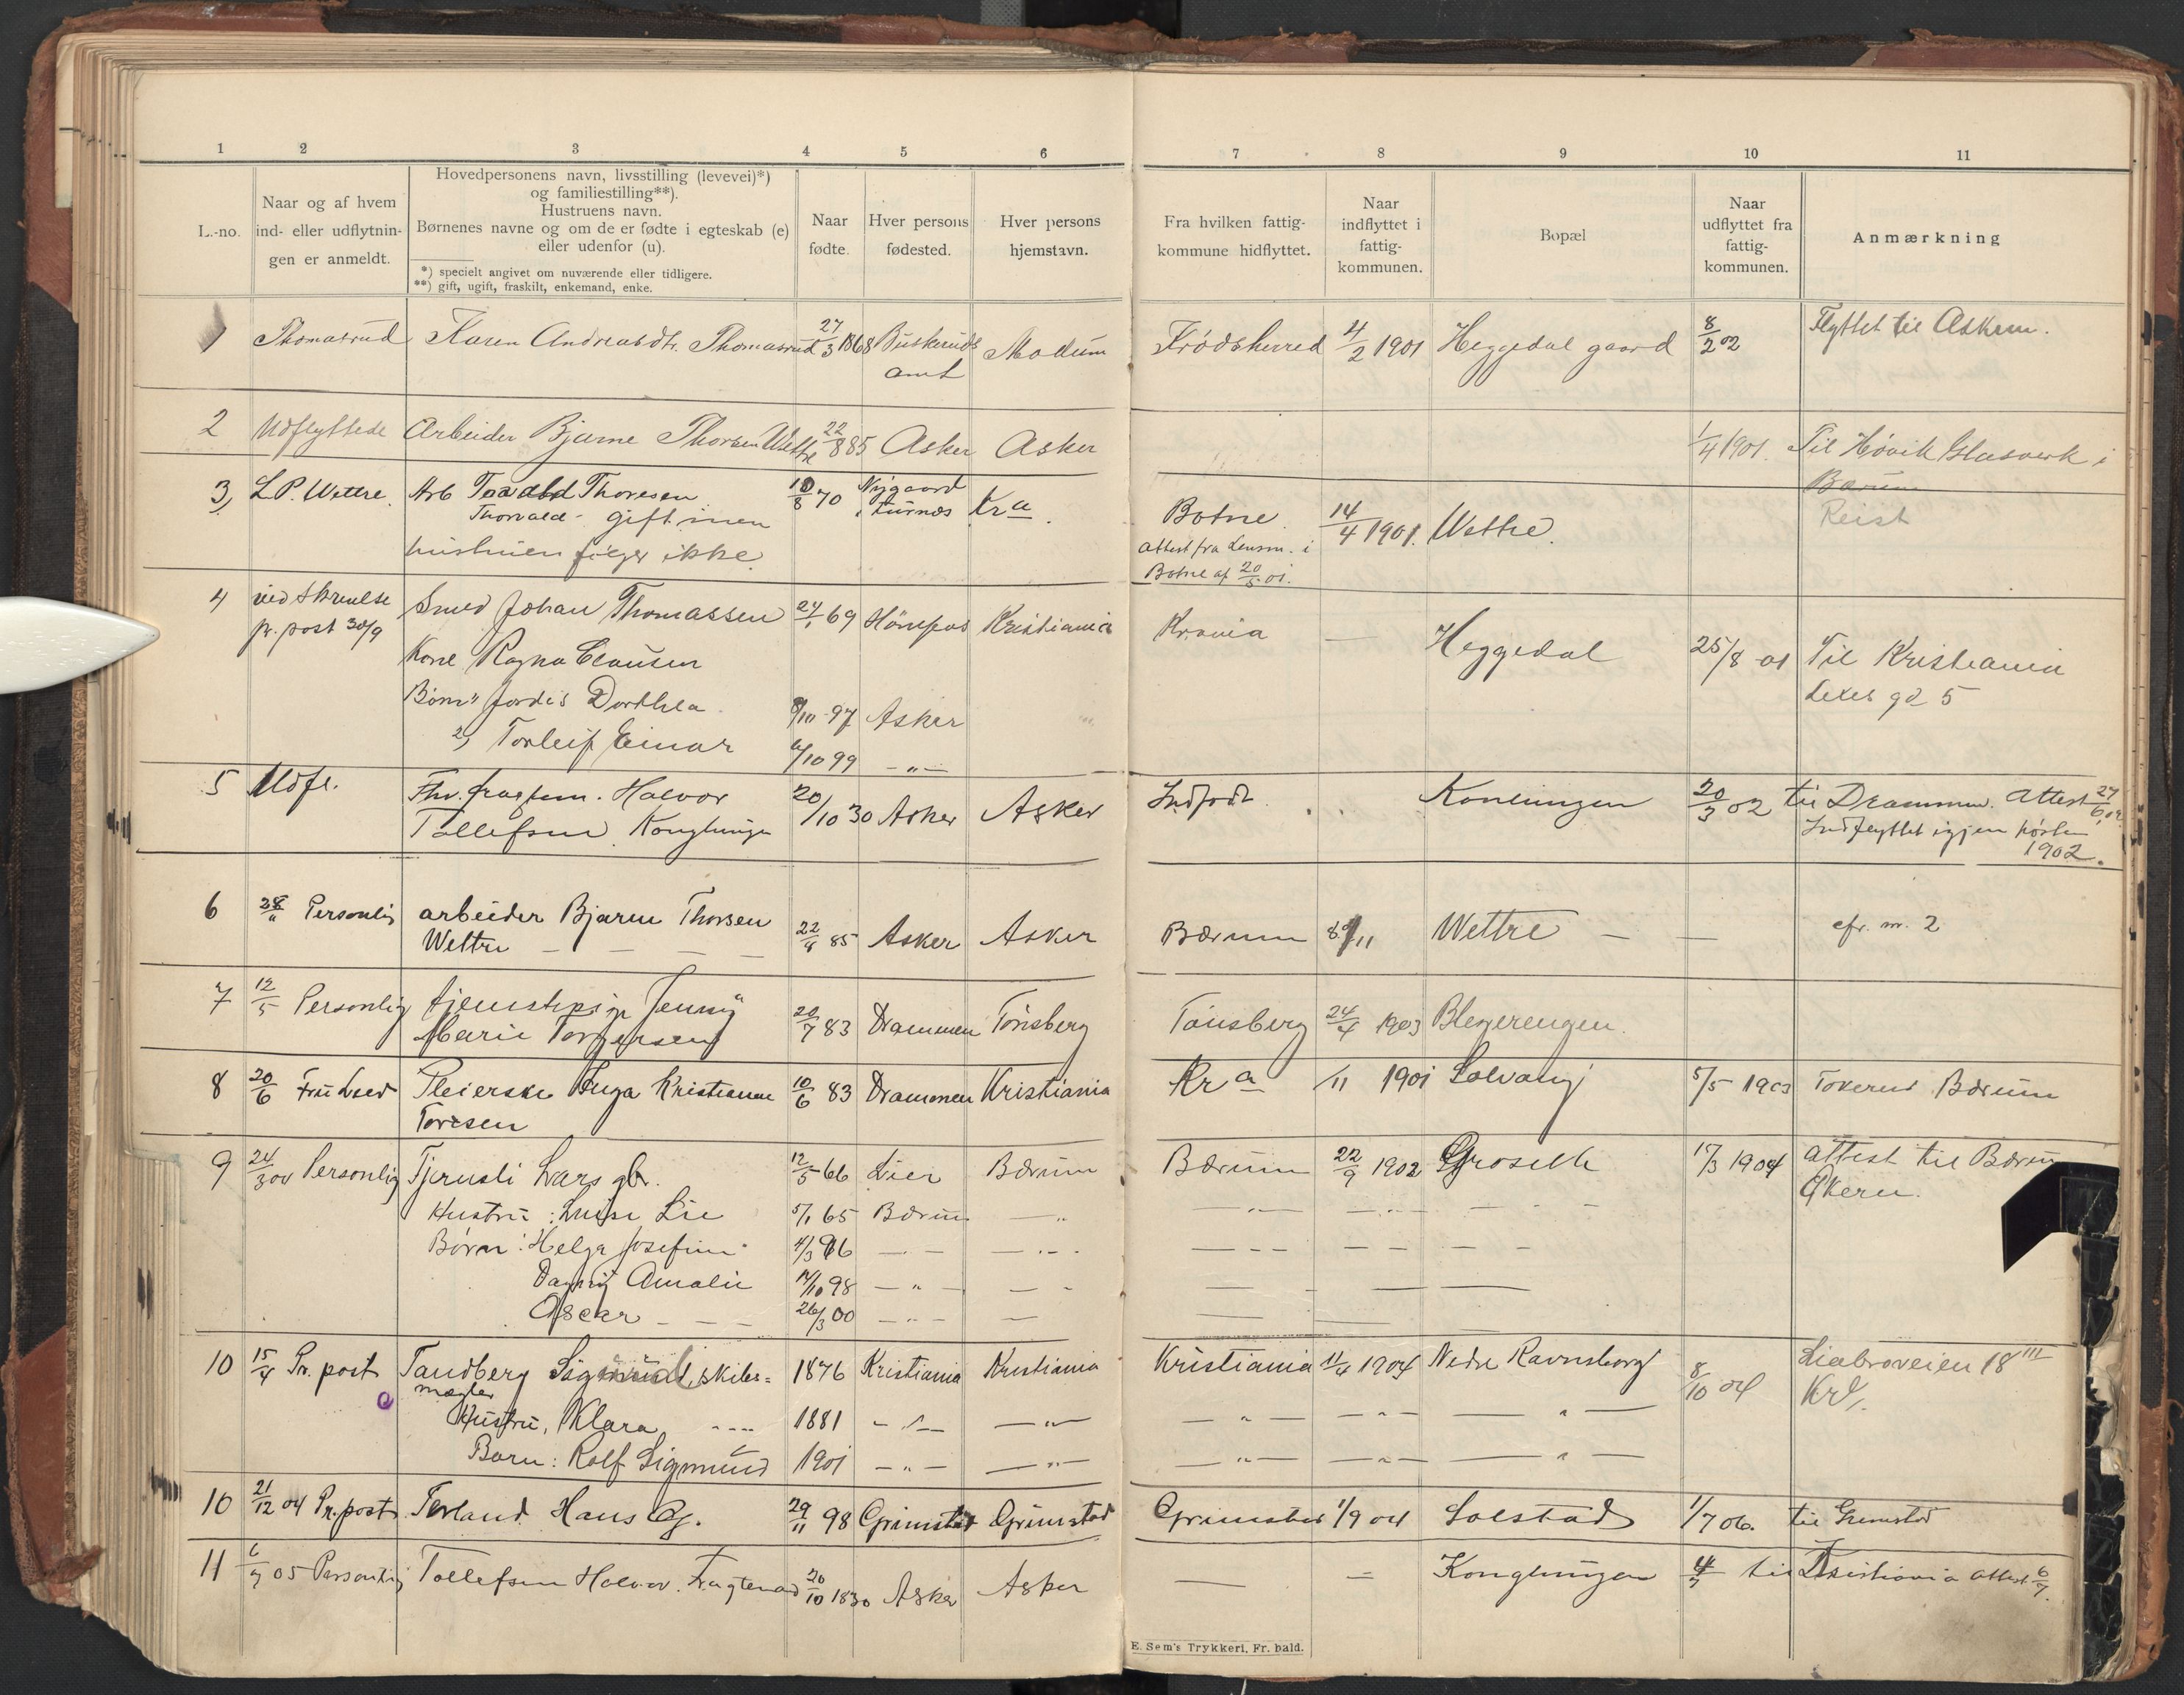 1 2 3 4 5 6 7 8 9 10 11
L.-no.
Naar og af hvem
ind- eller udflytnin-
gen er anmeldt.
Hovedpersonens navn, livsstilling (levevei)*)
og familiestilling**).
Hustruens navn.
Børnenes navne og om de er fødte i egteskab (e)
eller udenfor (u).
*) specielt angivet om nuværende eller tidligere.
**) gift, ugift, fraskilt, enkemand, enke.
Naar
fødte.
Hver persons
fødested.
Hver persons
hjemstavn.
Fra hvilken fattig-
kommune hidflyttet.
Naar
indflyttet i
fattig-
kommunen.
Bopæl
Naar
udflyttet fra
fattig-
kommunen.
Anmærkning
1 Thomasrud Karen Andreasdtr. Thomasrud 27/3 1868 Buskeruds Modum Krødsherred 4/2 1901 Heggedal gaard 8/2 02 Flyttet til Asker
amt
2 Udflyttede Arbeider Bjarne Thorsen Wettre 22/8 85 Asker Asker 1/4 1901. Til Høvik Glasverk i
Bærum
3, L.P. Wettre. Arb Thoresen 10/8 70 Nygaard Kra. Botne. 14/4 1901. Wettre. Reist
Thorvald - gift men i Kurnæs attest fra Lensm. i
hustruen følger ikke. Botne af 20/5 01.
4 ved skrivelse Smed Johan Thomassen 24/1 69 Hönefos Kristiania Krania — Heggedal 25/8 01 Til Kristiania
pr. post 30/9
Kone Ragna Clausen gd 5
Børn" Jordis Dorthea. 8/10 97 Asker
2) Torleif Einar 6/10 99 —"—
5 Udfl. Fhv. Halvor 20/10 30 Asker Asker Indfødt. Konlungen 20/3 02 til Drammen. Attest 27/6 02.
Tollefsen Konglungen Indflyttet igjen høsten
1902.
6 28/11 Personlig arbeider Bjarne Thorsen 22/8 85 Asker Asker Bærum 8/11 Wettre — — cfr. nr. 2
Wettre — — —
7 12/5 Personlig tjenestepige Jenny 20/7 83 Drammen Tönsberg Tönsberg 24/4 1903 Blegerengen.
Marie Torgersen
8 20/6 Fru Pleierske Inga Kristiane 10/6 83 Drammen Kristiania Kra /11 1901 Solvang 5/5 1903 Tokerud Bærum
Toresen
9 24/3 04 Personlig Tjernsli Lars gbr. 12/5 66 Lier Bærum Bærum 22/9 1902 Groseth 15/3 1904 attest til Bærum
Akeru.
Hustru: Luise Lie 5/1 65 Bærum —"
Børn: Helga Josefine 4/3 96 — —
Dagny Amalie 14/10 98 —"—
Oscar — — — 26/3 00 —"—
10 15/4 Pr. post Tandberg Sigmund, skibs= 1876 Kristiania Kristiania Kristiania 11/4 1904 Nedre Ravnsborg 8/10 04 Liabroveien 18 III
mægler Kra.
Hustru, Klara 1881 —"— —"— —"— —"— —"—
Barn: Rolf Sigmund 1901 —"— —"— —"— —"— —"—
10 21/12 04 Pr. post Terland Hans Og. 29/11 98 Grimstad Grimstad Grimstad 1/9 04 Solstad 1/7 06. til Grimstad
11 6/7 05 Personlig Tollefsen Halvor. Fragtemand 20/10 1830 Asker Asker — = Konglungen 4/7 til Kristiania attest 6/7.
E. Sem's Trykkeri, Fr. hald.